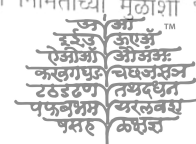 निर्मितीच्या मुळाशी
अ आ ™
इ ई उ ऊ ए ऍ
ऐ ओ औ अं अः
क ख ग घ ङ च छ ज झ ञ
ट ठ ड ढ ण त थ द ध न
प फ ब भ म य र ल व श
ष स ह ळ क्ष ज्ञ